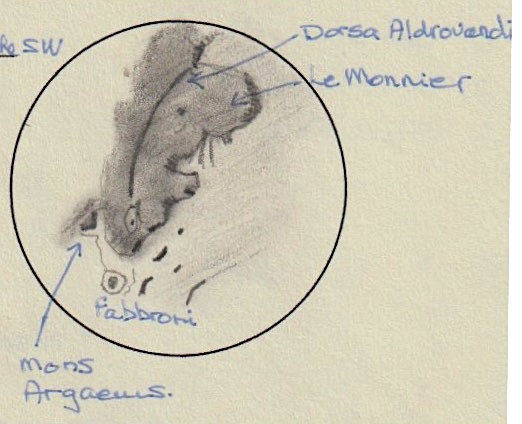 SW
Dorsa Aldrovandi
Le Monnier
Fabbroni
Mons
Argaeus.